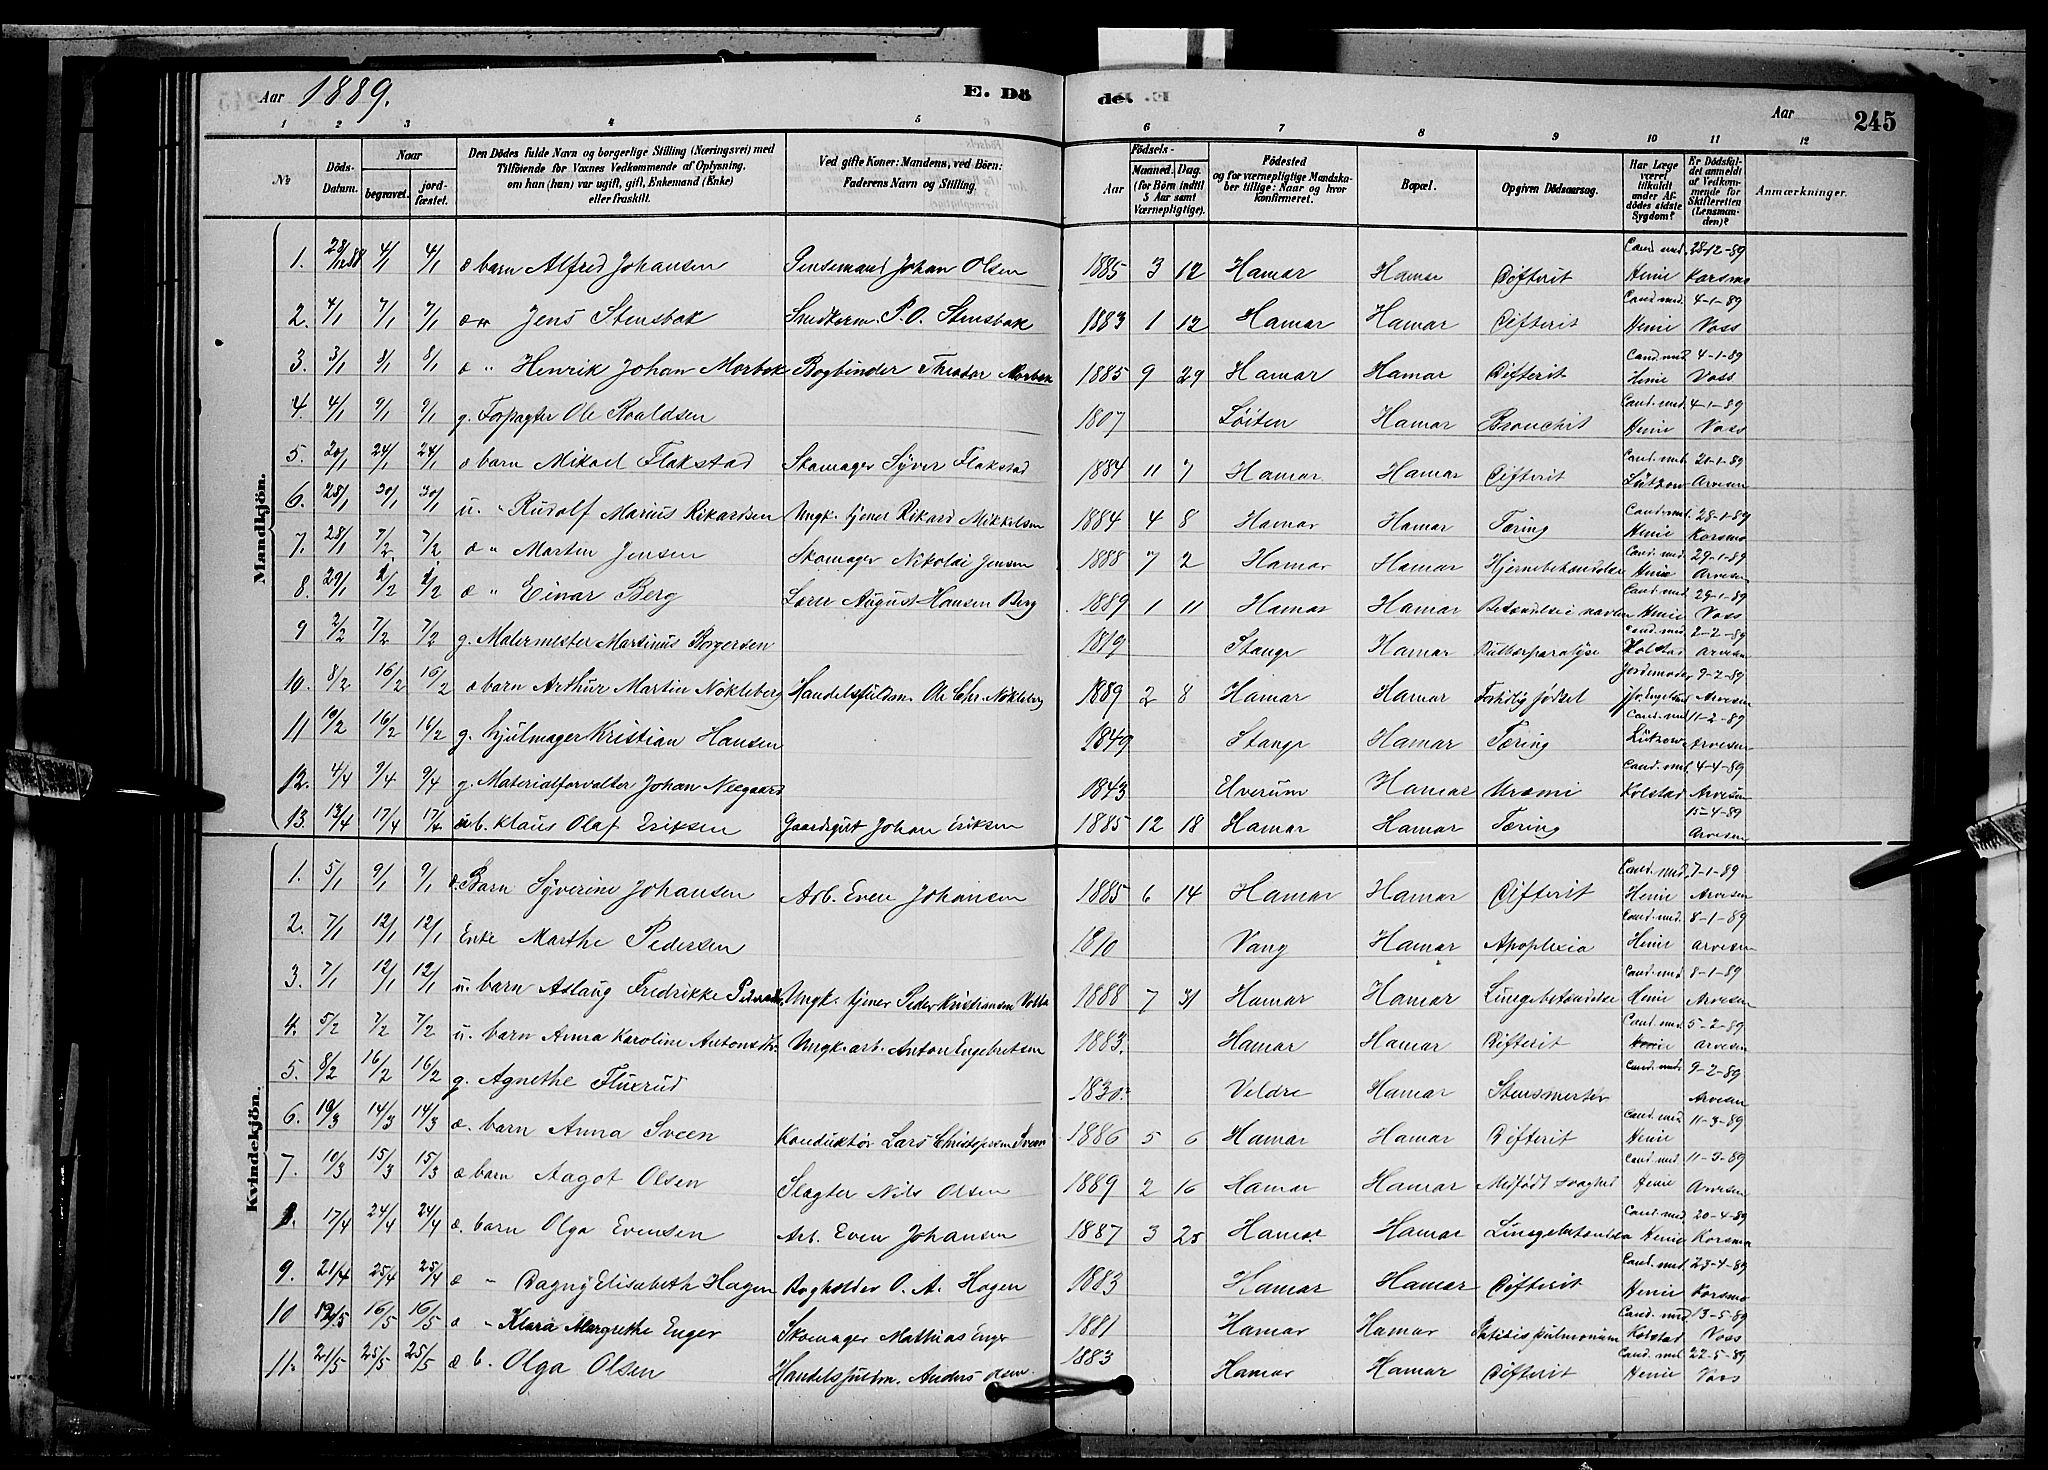 Aar 1889. E. Dö de. Aar 245
1 2 3 4 5 6 7 8 9 10 11 12
№ Döds-Datum. Naar begravet. jord-fæstet. Den Dödes fulde Navn og borgerlige Stilling (Næringsvei) med Tilföiende for Voxnes Vedkommende af Oplysning, om han (hun) var ugift, gift, Enkemand (Enke) eller fraskilt. Ved gifte Koner: Mandens, ved Börn: Faderens Navn og Stilling. Födsels- Aar Maaned. Dag. (for Börn indtil 5 Aar samt Værnepligtige). Födested og for værnepligtige Mandskaber tillige: Naar og hvor konfirmeret. Bopæl. Opgiven Dödsaarsag. Har Læge været tilkaldt under Afdödes sidste Sygdom? Er Dödsfaldet anmeldt af Vedkommende for Skifteretten (Lensmanden)? Anmærkninger.
Mandkjön.
1. 28/12 88 4/1 4/1 æ barn Alfred Johansen Johan Olsen 1885 3 12 Hamar Hamar Difterit Cand. med. Henie 28-12-89 Korsmo
2. 4/1 7/1 7/1 æ " Jens Stensbak Snedkerm. P. O. Stensbak 1883 1 12 Hamar Hamar Difterit Cand. med. Henie 4-1-89 Voss
3. 3/1 8/1 8/1 æ " Henrik Johan Morbek Bogbinder Theodor Morbek 1885 9 29 Hamar Hamar Difterit Cand. med. Henie 4-1-89 Voss
4. 4/1 9/1 9/1 g. Forpagter Ole Roaldsen 1807 Löiten Hamar Bronchit Cand. med. Henie 4-1-89 Voss
5. 20/1 24/1 24/1 æ barn Mikael Flakstad Skomager Syver Flakstad 1884 11 7 Hamar Hamar Difterit Cand. med. Lützow 21-1-89 Arvesen
6. 28/1 30/1 30/1 u. " Rudolf Marius Rikardsen Ungk. tjener Rikard Mikkelsen 1884 4 8 Hamar Hamar Tæring Cand. med. Henie 28-1-89 Korsmo
7. 28/1 7/2 7/2 æ " Martin Jensen Skomager Nikolai Jensen 1888 7 2 Hamar Hamar Cand. med. Henie 29-1-89 Arvesen
8. 29/1 1/2 1/2 æ " Einar Berg Lærer August Hansen Berg 1889 1 11 Hamar Hamar Betændelse i navlen Cand. med. Henie 29-1-89 Voss
9 2/2 7/2 7/2 g. Malermester Martinus Borgersen 1819 Stange Hamar Bulbærparalyse Cand. med. Kolstad 2-2-89 Arvesen
10. 8/2 16/2 16/2 æ barn Arthur Martin Nökleberg Handelsfuldm. Ole Chr. Nökleberg 1889 2 8 Hamar Hamar Fortidlig födsel Jordemoder 9-2-89 Arvesen
11 10/2 16/2 16/2 g. hjulmager Kristian Hansen 1849 Stange Hamar Tæring Cand. med. Lützow 11-2-89 Arvesen
12. 4/4 9/4 9/4 g. Materialforvalter Johan Neegaard 1843 Elverum Hamar Uræmi Cand. med. Kolstad 4-4-89 Arvesen
13. 13/4 17/4 17/4 u. b. Klaus Olaf Eriksen Gaardsgut Johan Eriksen 1885 12 18 Hamar Hamar Tæring 15-4-89 Arvesen
Kvindekjön.
1. 5/1 9/1 9/1 æ. Barn Syverine Johansen Arb. Even Johansen 1885 6 14 Hamar Hamar Difterit Cand. med. Henie 7-1-89 Arvesen
2. 7/1 12/1 12/1 Enke Marthe Pedersen 1810 Vang Hamar Apoplexia Cand. med. Henie 8-1-89 Arvesen
3. 7/1 12/1 12/1 u. barn Aslaug Fredrikke Ungk. tjener Peder Kristiansen 1888 7 31 Hamar Hamar Lungebetændelse Cand. med. Henie 8-1-89 Arvesen
4. 5/2 7/2 7/2 u. barn Anna Karoline Antonsdtr. Ungk. arb. Anton Engebretsen 1883. Hamar Hamar Difterit Cand. med. Henie 5-2-89 Arvesen
5. 8/2 16/2 16/2 g. Agnethe Fluxrud 1830. Veldre Hamar Stensmerter Cand. med. 9-2-89 Arvesen
6. 10/3 14/3 14/3 æ. barn Anna Sveen Konduktör Lars Christensen Sveen 1886 5 6 Hamar Hamar Difterit Cand. med. Henie 11-3-89
7. 10/3 15/3 15/3 æ barn Aagot Olsen Slagter Nils Olsen 1889 2 16 Hamar Hamar Medfödt svaghed Cand. med. Henie 11-3-89 Arvesen
8. 17/4 24/4 24/4 æ. barn Olga Evensen Arb. Even Johansen 1887 3 25 Hamar Hamar Lungebetændelse Cand. med. Henie 20-4-89 Korsmo
9. 21/4 25/4 25/4 æ " Dagny Elisabeth Hagen Bogholder O. A. Hagen 1883 Hamar Hamar Difterit Cand. med. Henie 23-4-89 Korsmo
10 12/5 16/5 16/5 æ " Klara Margrethe Enger Skomager Mathias Enger 1881 Hamar Hamar pulmonum Cand. med. Kolstad 13-5-89 Voss
11. 21/5 25/5 25/5 æ b. Olga Olsen Handelsfuldm. Anders Olsen. 1883 Hamar Hamar Difterit Cand. med. Henie 22-5-89 Voss